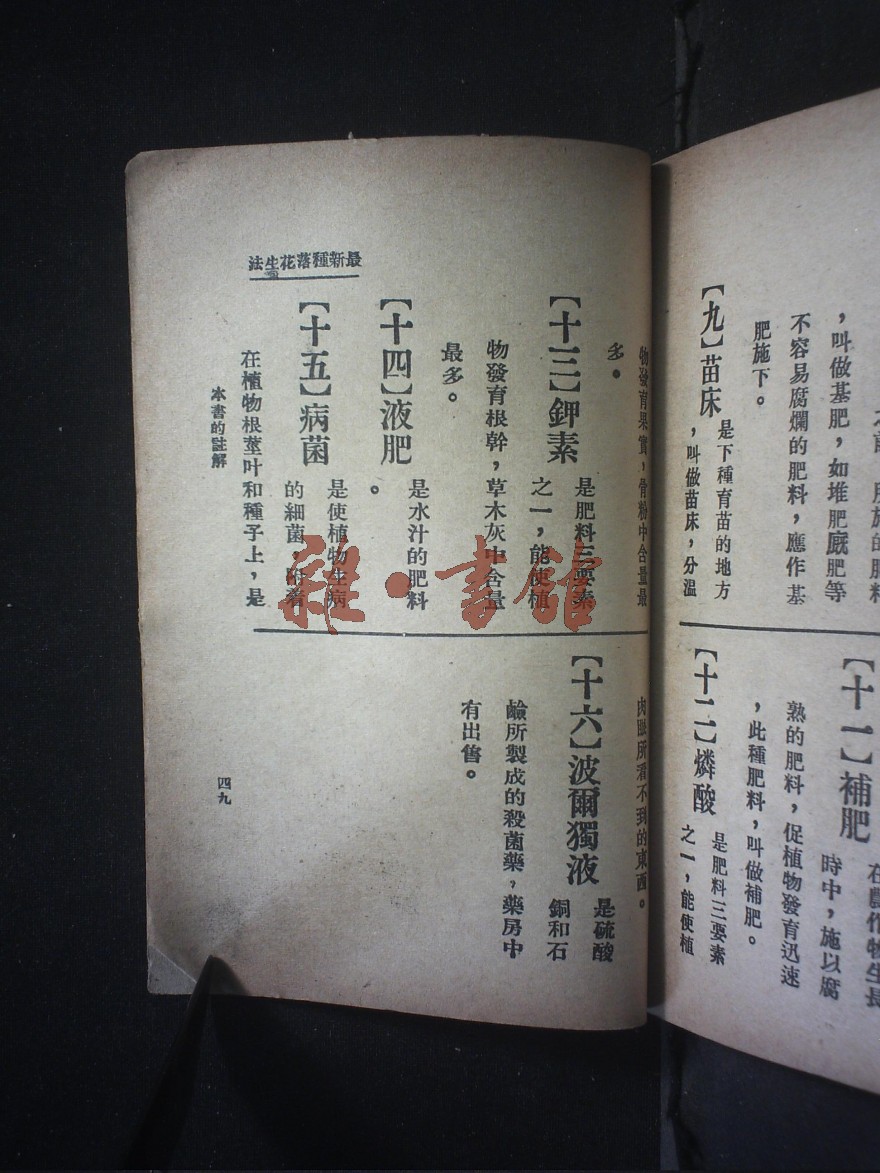 ，叫做基肥，如堆肥廐肥等
不容易腐爛的肥料，應作基
肥施下。
【九】苗床
是下種育苗的地方
，叫做苗床，分溫
【十一】補肥
在農作物生長
時中，施以腐
熟的肥料，促植物發育迅速
，此種肥料，叫做補肥。
【十二】燐酸
是肥料三要素
之一，能使植
最新種落花生法
物發育果實，骨粉中含量最
多。
【十三】鉀素
是肥料三要素
之一，能使植
物發育根幹，草木灰中含量
最多。
【十四】液肥
是水汁的肥料
。
【十五】病菌
是使植物生病
的細菌，附着
在植物根莖叶和種子上，是
肉眼所看不到的東西。
【十六】波爾獨液
是硫酸
銅和石
鹼所製成的殺菌藥，藥房中
有出售。
本書的註解
四九
雜·書館